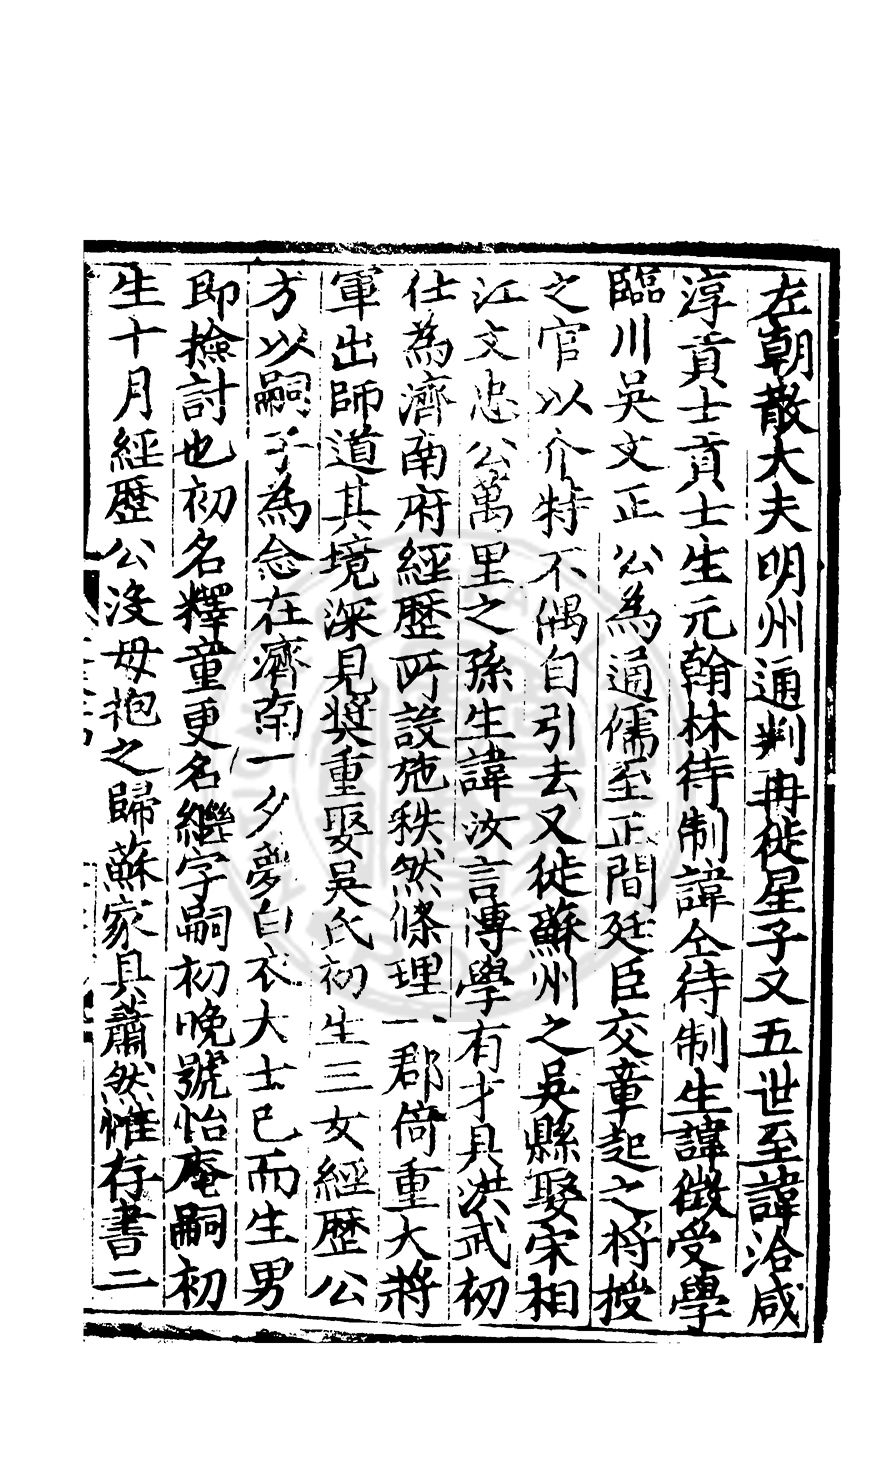 左朝散大夫明州通判冉徙星子又五世至諱洽咸
淳貢士貢士生元翰林待制諱仝待制生諱徵受學
臨川吳文正公為通儒至正間廷臣交章起之将授
之官以介特不偶自引去又徙蘇州之吳縣娶宋相
江文忠公萬里之孫生諱汝言博學有才具洪武初
仕為濟南府經歷所設施秩然條理一郡倚重大將
軍出師道其境深見奨重娶吳氏初生三女經歷公
方以嗣子為念在濟南一夕夢白衣大士已而生男
即撿討也初名釋童更名繼字嗣初晚號怡庵嗣初
生十月經歷公没母抱之歸蘇家具蕭然惟存書二